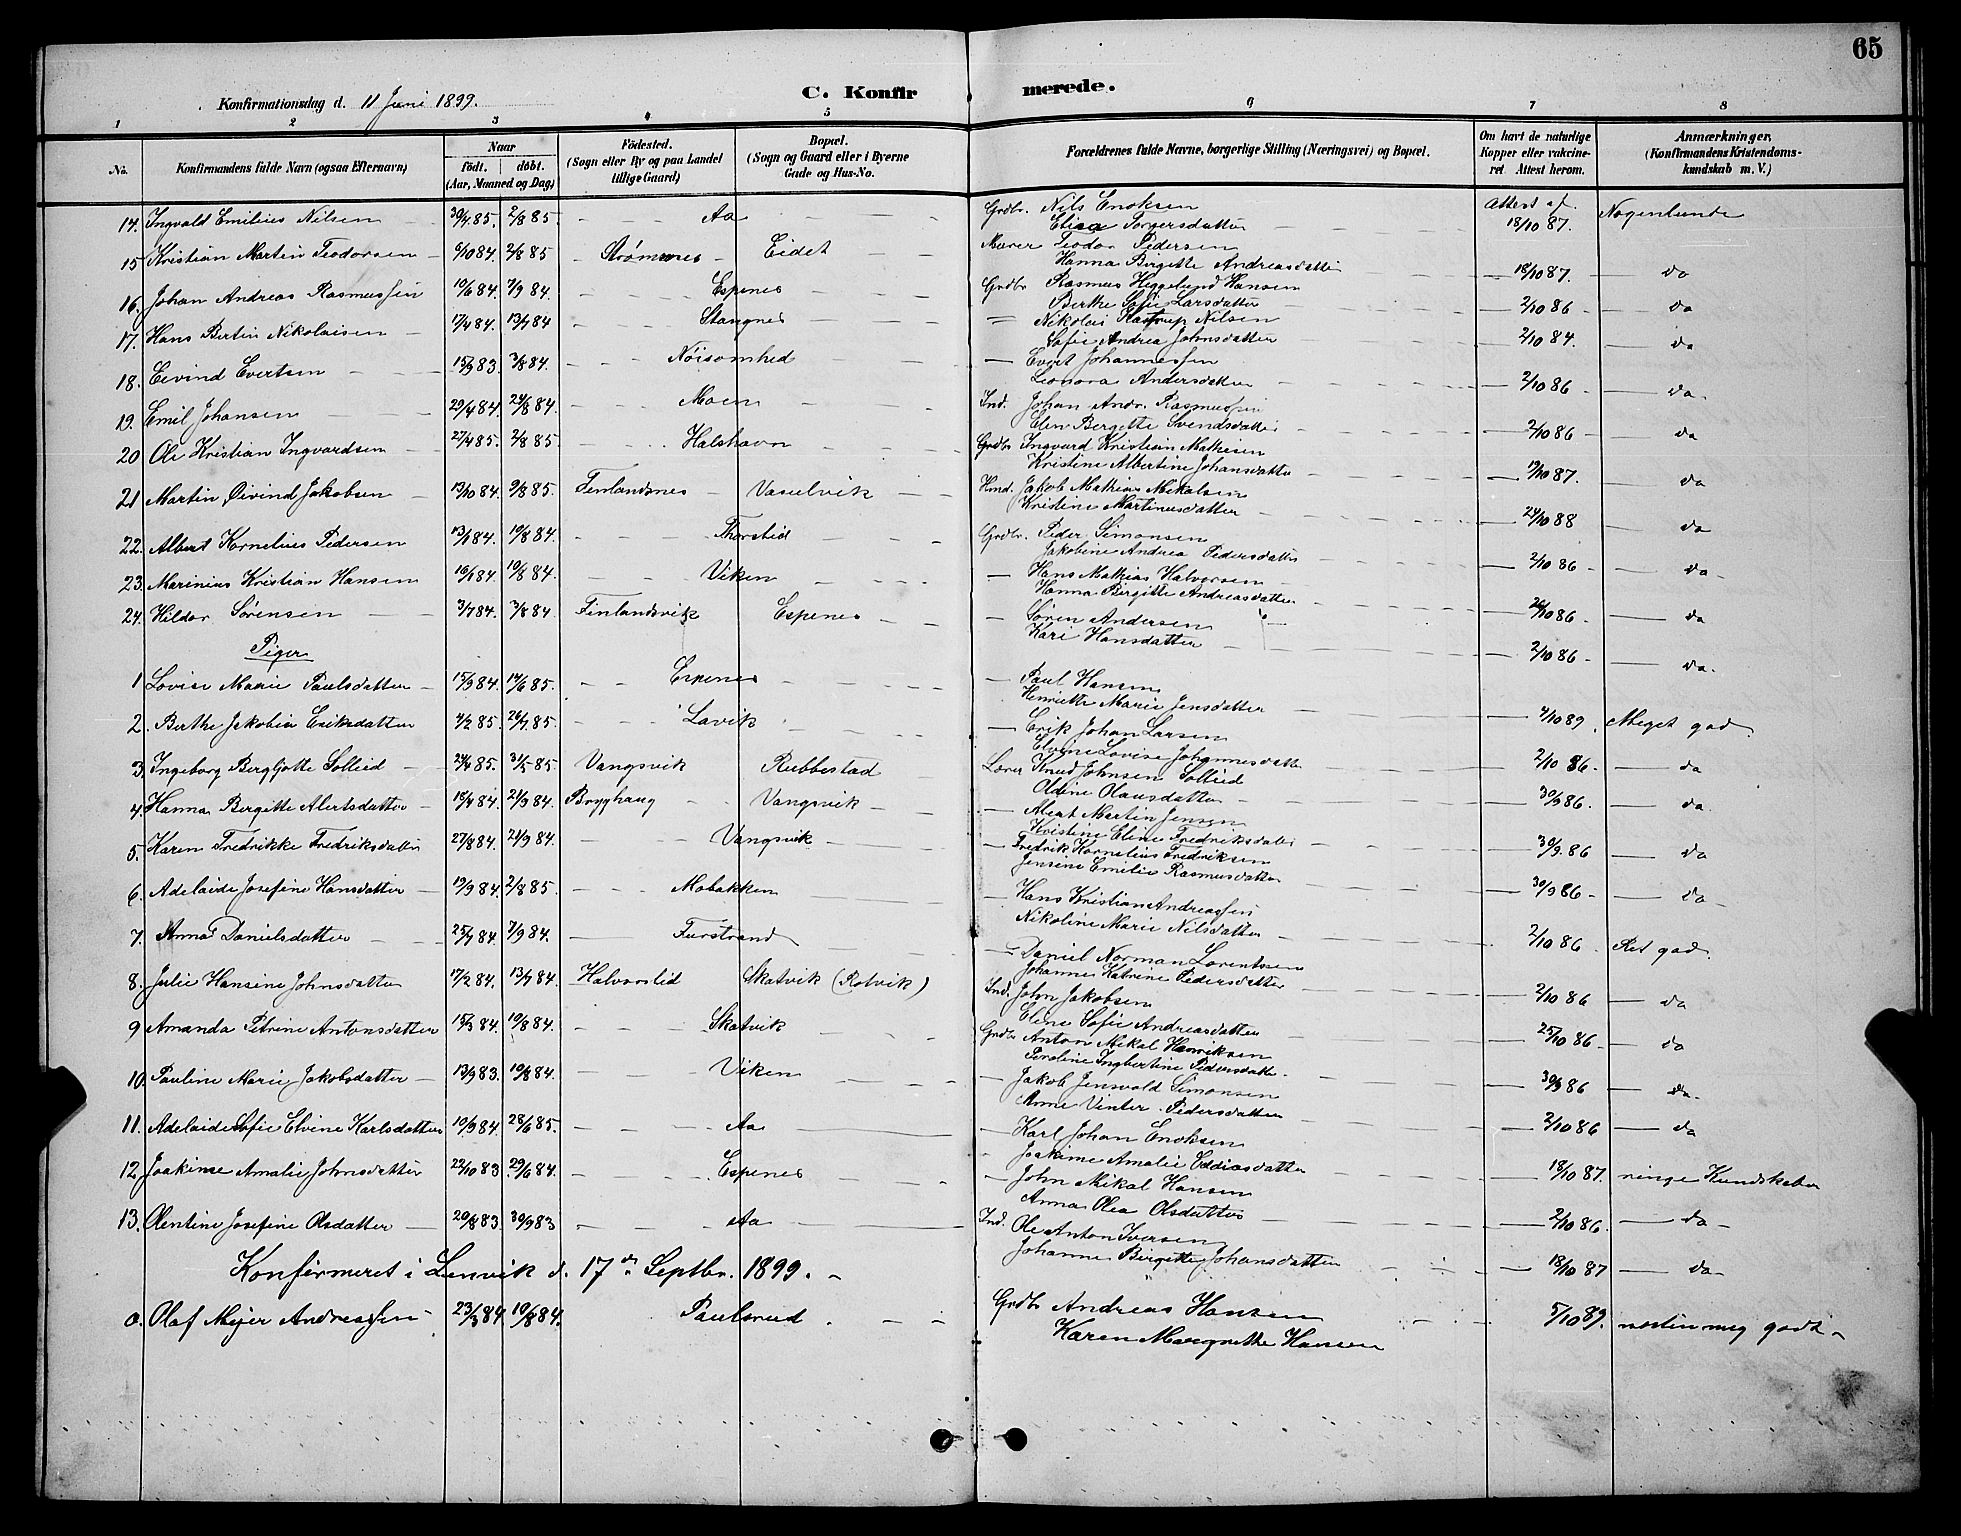 65
Konfirmationsdag d. 11 Juni 1899.
C. Konfirmerede.
1 2 3 4 5 6 7 8
No.
Konfirmandens fulde Navn (ogsaa Efternavn)
Naar
födt. döbt.
(Aar, Maaned og Dag)
Födested.
(Sogn eller By og paa Landet
tillige Gaard)
Bopæl.
(Sogn og Gaard eller i Byerne
Gade og Hus-No.
Forældrenes fulde Navne, borgerlige Stilling (Næringsvei) og Bopæl.
Om havt de naturlige
Kopper eller vakcine-
ret Attest herom.
Anmærkninger,
(Konfirmandens Kristendoms-
kundskab m. V.)
14. Ingvald Emilius Nilsen 30/4 85. 2/8 85 Aa Grdbr. Nils Enoksen Attest af 18/10 87. Nogenlunde
Elisa Torgersdatter
15 Kristian Martin Teodorsen 6/10 84. 2/8 85 Strømnes Eidet Murer Teodor Pedersen 18/10 87. da
Hanna Birgitte Andreasdatter
16. Johan Andreas Rasmussen 10/6 84. 7/9 84. Espenes Grdbr Rasmus Heggelund Hansen 2/10 86 da
Berthe Sofie Larsdatter
17. Hans Bertin Nikolaisen 17/4 84. 13/7 84 Stangnes Nikolai Kastrup Nilsen 2/10 84. da
Sofie Andrea Johnsdatter
18. Eivind Evertsen 15/9 83. 3/8 84. Nöisomhed Evert Johannessen 2/10 86 da.
Leonora Andersdatter
19. Emil Johansen 29/4 84. 24/8 84. Moen Ind. Johan Andr. Rasmussen 2/10 86 da
Elen Bergette Svendsdatter
20 Ole Kristian Ingvardsen 27/4 85. 2/8 85. Halshavn Grdbr Ingvard Kristian Mathisen 19/10 87. da
Kristine Albertine Johansdatter
21 Martin Øivind Jakobsen 13/10 84. 9/8 85. Finlandsnes Vasselvik Hmd. Jakob Mathias Mikalsen 24/10 88 da
Kristine Martinusdatter
22. Albert Kornelius Pedersen 13/1 84. 10/8 84. Thorslid Grdbr. Peder Simonsen 2/10 86 da
Jakobine Andrea Pedersdatter
23. Marinius Kristian Hansen 16/1 84. 10/8 84. Viken Hans Mathias Halvorsen 26/10 86 da
Hanna Birgitte Andreasdatter
24. Hildor Sørensen 3/7 84. 3/8 84 Finlandsvik Espenes Søren Andersen 2/10 86 da.
Kari Hansdatter
Piger
1 Lovise Marie Paulsdatter 15/9 84. 14/6 85. Espenes Paul Hansen 4/10 89. Meget god
Henriette Marie Jensdatter
2. Berthe Jakobia Eriksdatter 4/2 85. 26/7 85. Lavik Erik Johan Larsen 2/10 86. da
Elvine Lovise Johannesdatter
3. Ingeborg Bergljotte Sollied 24/4 85. 31/5 85 Vangsvik Rubbestad Lærer Knud Johnsen Sollied 30/9 86. da.
Oldine Olausdatter
4. Hanna Bergitte Alertsdatter 18/4 84. 21/9 84. Bryghaug Vangsvik Alert Martin Jensen 30/9. 86 da
Kristine Eline Fredriksdatter
5. Karen Fredrikke Fredriksdatter 27/8 84. 21/9 84. Vangsvik Fredrik Kornelius Fredriksen 30/9 86 da
Jensine Emilie Rasmusdatter
6. Adelaide Josefine Hansdatter 19/9 84. 2/8 85. Mobakken Hans Kristian Andreassen 2/10 86. Ret god.
Nikoline Marie Nilsdatter
7. Anna Danielsdatter 25/7 84. 7/9 84. Furstrand Daniel Norman Lorentsen 2/10 86 da
Johanna Katrine Pedersdatter
8. Julie Hansine Johnsdatter 17/2 84. 13/7 84. Halvorslid Skatvik (Rotvik) Ind. John Jakobsen 25/10 86 da
Eline Sofie Andreasdatter
9 Amanda Petrine Antonsdatter 15/3 84. 10/8 84. Skatvik Grdbr Anton Mikal Henriksen 30/9 86 da.
Peroline Ingbertine Pedersdatter
10. Pauline Marie Jakobsdatter 13/9 83. 10/8 84. Viken Jakob Jensvold Simonsen 2/10 86 da
Anne Vinter Pedersdatter
11. Adelaide Sofie Elvine Karlsdatter 10/9 84. 28/6 85. Aa Karl Johan Enoksen 18/10 87. ringe Kundskaber
Joakime Amalie Eddiasdatter
12 Joakime Amalie Johnsdatter 22/10 83. 29/6 84. Espenes John Mikal Hansen 2/10 86. da
Anna Olea Olsdatter
13. Olentine Josefine Olsdatter 20/8 83. 30/9 83 Aa Ind. Ole Anton Iversen 18/10 87 da
Johanne Birgitte Johansdatter
Konfirmeret i Lenvik d. 17de Septbr. 1899.
0. Olaf Meyer Andreassen 23/3 84. 10/8 84. Paulsrud Grdbr Andreas Hansen 5/10 89. nesten meg godt
Karen Margrethe Hansen